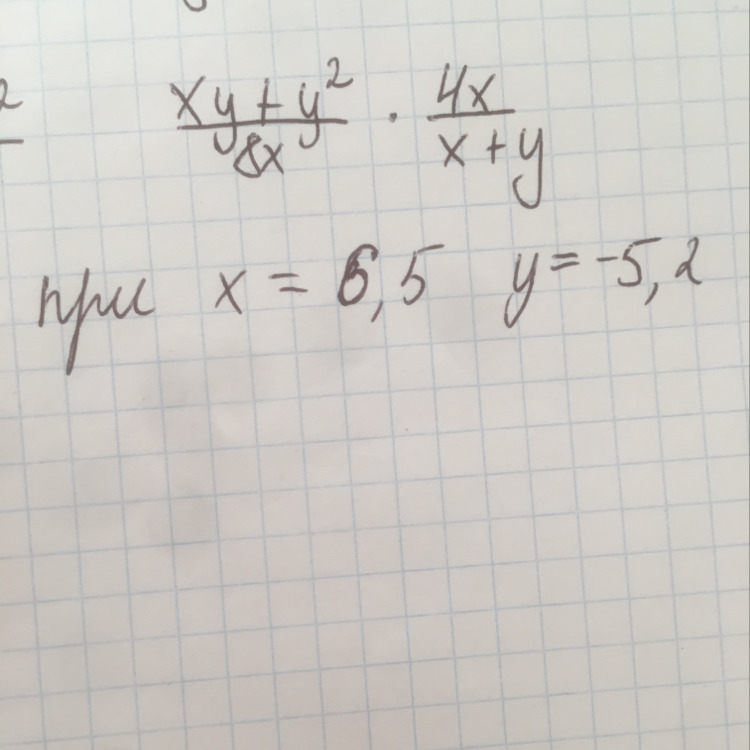 2
xy + y² / 8x · 4x / x + y
при x = 6,5 y = -5,2